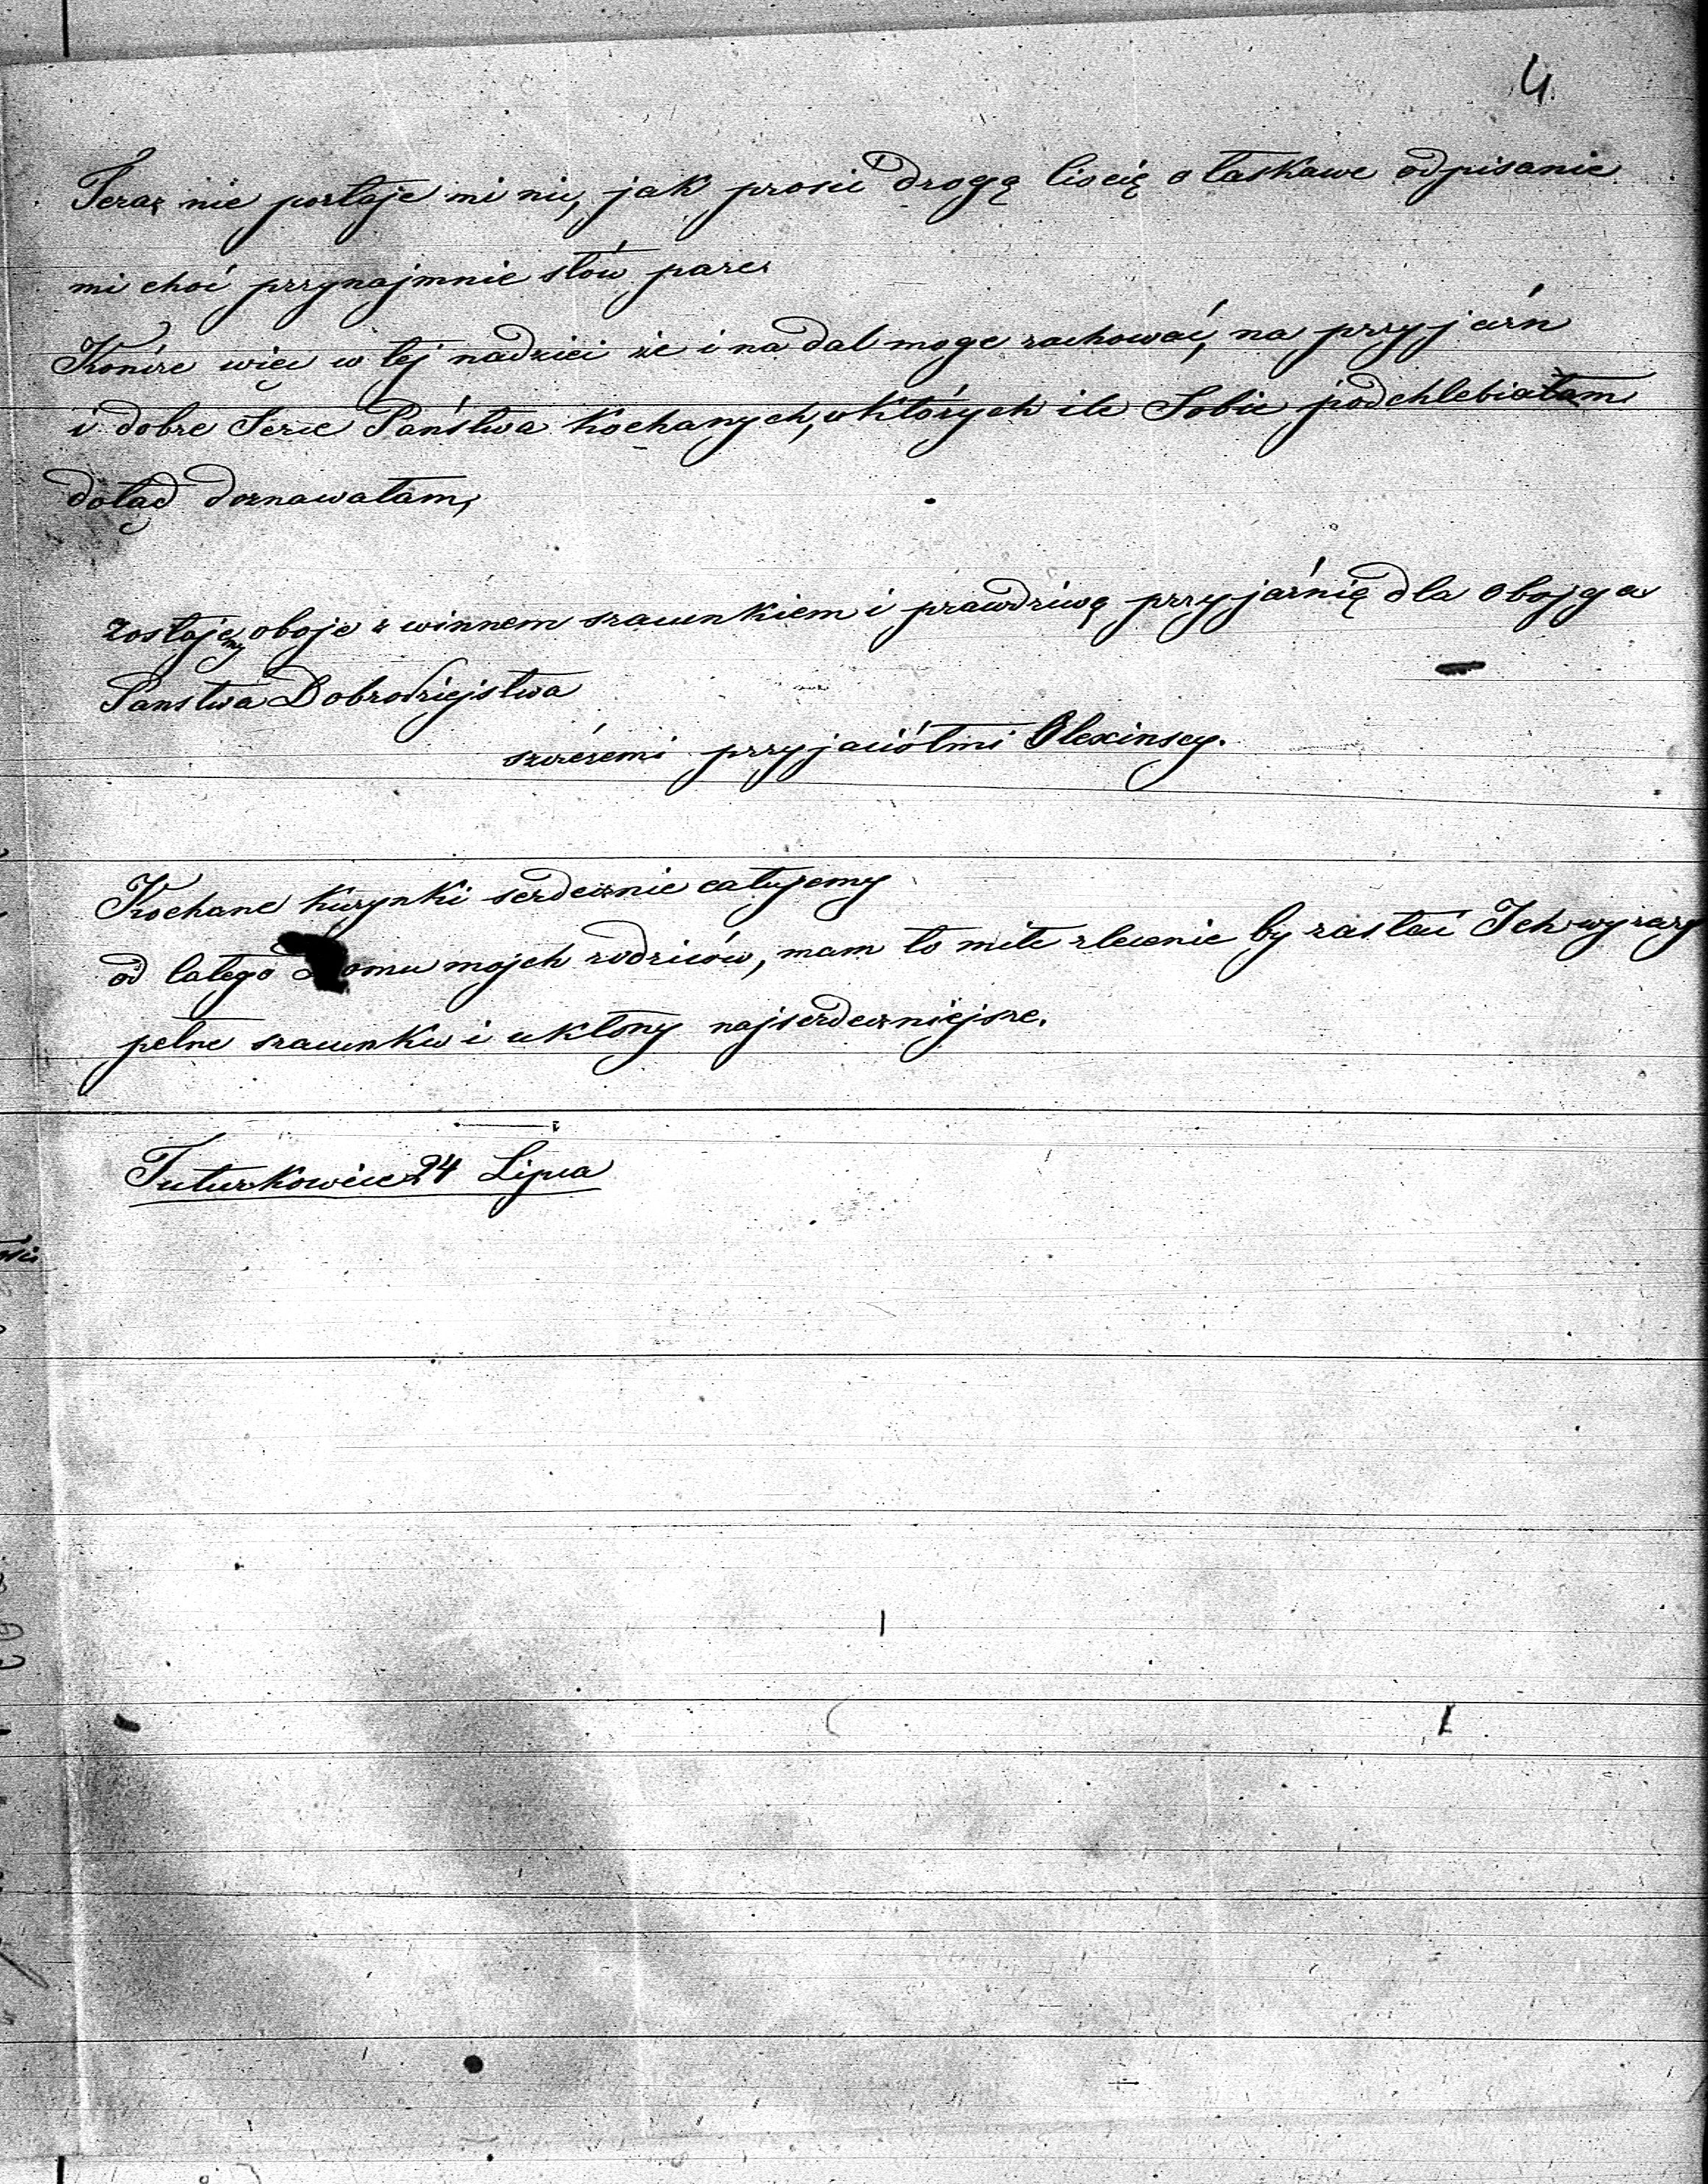 4
Teraz nie postaje mi nic, jak prosić drogą Ciocię o łaskawe odpisanie
mi choć przynajmnie słów pare.
Kończe więc w tej nadzieci że i na dal moge rachować, na przyjaźń
i dobre Serce Państwa Kochanych, których ile Sobie podchlebiałam
dotąd doznawałam,
zostajemy oboje z winnem szacunkiem i prawdziwą przyjaźnią dla Obojga
Panstwa Dobrodziejstwa
szczéremi przyjaciółmi Olexinscy.
Kochane Kuzynki serdecznie całujemy
od całego Domu mojch rodziców, mam to miłe zlecenie by zasłać Ich wyrazy
pełne szacunku i ukłony najserdeczniejsze.
Tuturkowice 24 Lipca